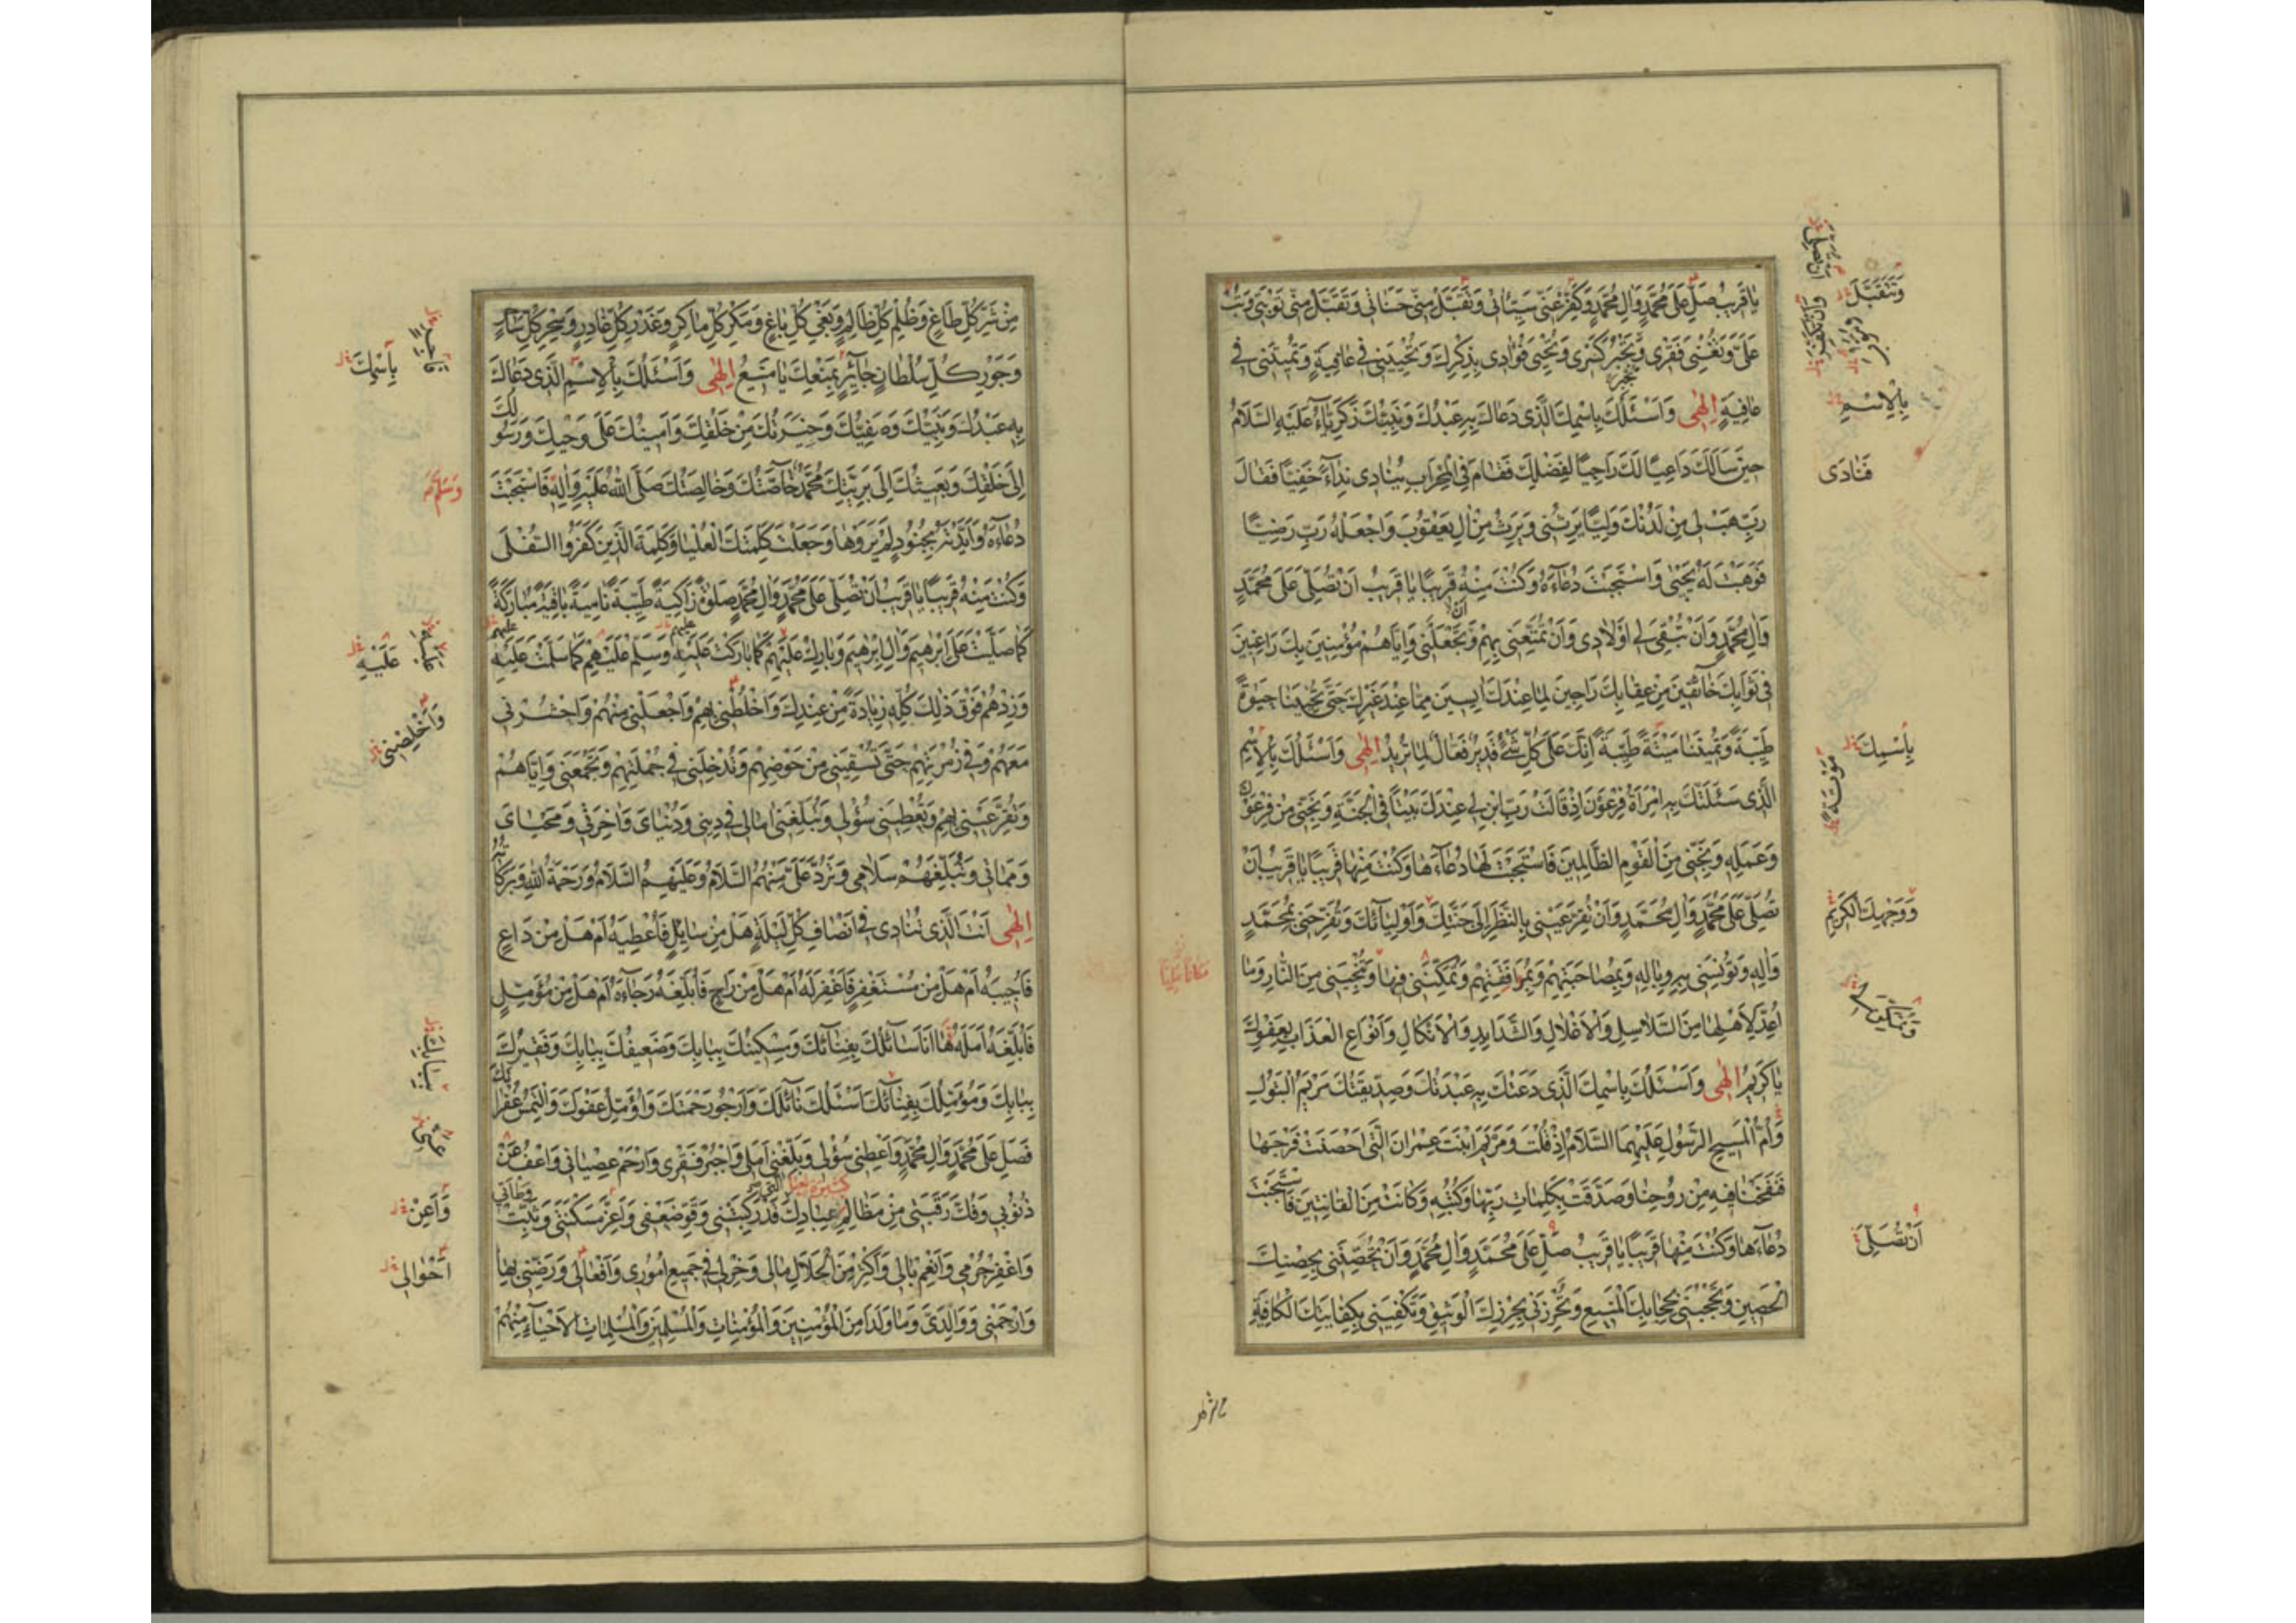 يا قَريبُ صَلِّ عَلى مُحَمَّدٍ وَالِ مُحَمَّدٍ وَكَفِّرْ عَنّي سَيِّئاتي وَتَقَبَّلْ مِنّي حَسَناتي وَتَقَبَّلْ مِنّي تَوْبَتي وَتُبْ
عَلَيَّ وَتُغْنِيَ فَقْري وَتَجْبُرَ كَسْري وَتُحْيِيَ فُؤادي بِذِكْرِكَ وَتُحْيِيَني في عافِيَةٍ وَتُميتَني في
عافِيَةٍ اِلٰهي وَاَسْئَلُكَ بِاسْمِكَ الَّذي دَعاكَ بِهِ عَبْدُكَ وَنَبِيُّكَ زَكَرِيّاءُ عَلَيْهِ السَّلامُ
حينَ سَاَلَكَ داعِيًا لَكَ راجِيًا لِفَضْلِكَ فَقامَ فِي الْمِحْرابِ يُنادي نِداءً خَفِيًّا فَقالَ
رَبِّ هَبْ لي مِنْ لَدُنْكَ وَلِيًّا يَرِثُني وَيَرِثُ مِنْ الِ يَعْقُوبَ وَاجْعَلْهُ رَبِّ رَضِيًّا
فَوَهَبْتَ لَهُ يَحْيٰى وَاسْتَجَبْتَ دُعاءَهُ وَكُنْتَ مِنْهُ قَريبًا يا قَريبُ اَنْ تُصَلِّيَ عَلى مُحَمَّدٍ
وَالِ مُحَمَّدٍ وَاَنْ تُبْقِيَ لي اَوْلادي وَاَنْ تُمَتِّعَني بِهِمْ وَتَجْعَلَني وَاِيّاهُمْ مُؤْمِنينَ بِكَ راغِبينَ
في ثَوابِكَ خائِفينَ مِنْ عِقابِكَ راجينَ لِما عِنْدَكَ ايِسينَ مِمّا عِنْدَ غَيْرِكَ حَتّى تُحْيِيَنا حَيٰوةً
طَيِّبَةً وَتُميتَنا ميتَةً طَيِّبَةً اِنَّكَ عَلى كُلِّ شَيْءٍ قَديرٌ فَعّالٌ لِما تُريدُ اِلٰهي وَاَسْئَلُكَ بِالْاِسْمِ
الَّذي سَئَلَتْكَ بِهِ امْرَاَةُ فِرْعَوْنَ اِذْ قالَتْ رَبِّ ابْنِ لي عِنْدَكَ بَيْتًا فِي الْجَنَّةِ وَنَجِّني مِنْ فِرْعَوْنَ
وَعَمَلِهِ وَنَجِّني مِنَ الْقَوْمِ الظّالِمينَ فَاسْتَجَبْتَ لَها دُعاءَها وَكُنْتَ مِنْها قَريبًا يا قَريبُ اَنْ
تُصَلِّيَ عَلى مُحَمَّدٍ وَالِ مُحَمَّدٍ وَاَنْ تُقِرَّ عَيْني بِالنَّظَرِ اِلى جَنَّتِكَ وَاَوْلِيائِكَ وَتُفَرِّحَني بِمُحَمَّدٍ
وَالِهِ وَتُؤْنِسَني بِهِ وَبِالِهِ وَبِمُصاحَبَتِهِمْ وَبِمُرافَقَتِهِمْ وَتُمَكِّنَني فيها وَتُنْجِيَني مِنَ النّارِ وَما
اُعِدَّ لِاَهْلِها مِنَ السَّلاسِلِ وَالْاَغْلالِ وَالشَّدايِدِ وَالْاَنْكالِ وَاَنْواعِ الْعَذابِ بِعَفْوِكَ
يا كَريمُ اِلٰهي وَاَسْئَلُكَ بِاسْمِكَ الَّذي دَعَتْكَ بِهِ عَبْدَتُكَ وَصِدّيقَتُكَ مَرْيَمُ الْبَتُولُ
وَاُمُّ الْمَسيحِ الرَّسُولِ عَلَيْهِمَا السَّلامُ اِذْ قُلْتَ وَمَرْيَمَ ابْنَتَ عِمْرانَ الَّتي اَحْصَنَتْ فَرْجَها
فَنَفَخْنا فيهِ مِنْ رُوحِنا وَصَدَّقَتْ بِكَلِماتِ رَبِّها وَكُتُبِهِ وَكانَتْ مِنَ الْقانِتينَ فَاسْتَجَبْتَ
دُعاءَها وَكُنْتَ مِنْها قَريبًا يا قَريبُ صَلِّ عَلى مُحَمَّدٍ وَالِ مُحَمَّدٍ وَاَنْ تُحَصِّنَني بِحِصْنِكَ
الْحَصينِ وَتَحْجُبَني بِحِجابِكَ الْمَنيعِ وَتُحْرِزَني بِحِرْزِكَ الْوَثيقِ وَتَكْفِيَني بِكِفايَتِكَ الْكافِيَةِ
وَتَتَقَبَّلَ
بِالْاِسْمِ
فَنادى
بِاسْمِكَ
مَوْتَةً
وَوَجْهِكَ الْكَريمِ
وَتُمَكِّنَ لي
اَنْ تُصَلِّيَ
مِنْ شَرِّ كُلِّ طاغٍ وَظُلْمِ كُلِّ ظالِمٍ وَبَغْيِ كُلِّ باغٍ وَمَكْرِ كُلِّ ماكِرٍ وَغَدْرِ كُلِّ غادِرٍ وَسِحْرِ كُلِّ ساحِرٍ
وَجَوْرِ كُلِّ سُلْطانٍ جائِرٍ بِمَنْعِكَ يا مَنيعُ اِلٰهي وَاَسْئَلُكَ بِالْاِسْمِ الَّذي دَعاكَ
بِهِ عَبْدُكَ وَنَبِيُّكَ وَصَفِيُّكَ وَخِيَرَتُكَ مِنْ خَلْقِكَ وَاَمينُكَ عَلى وَحْيِكَ وَرَسُولُكَ
اِلى خَلْقِكَ وَبَعيثُكَ اِلى بَرِيَّتِكَ مُحَمَّدٌ خاصَّتُكَ وَخالِصَتُكَ صَلَّى اللهُ عَلَيْهِ وَالِهِ فَاسْتَجَبْتَ
دُعاءَهُ وَاَيَّدْتَهُ بِجُنُودٍ لَمْ يَرَوْها وَجَعَلْتَ كَلِمَتَكَ الْعُلْيا وَكَلِمَةَ الَّذينَ كَفَرُوا السُّفْلى
وَكُنْتَ مِنْهُ قَريبًا يا قَريبُ اَنْ تُصَلِّيَ عَلى مُحَمَّدٍ وَالِ مُحَمَّدٍ صَلٰوةً زاكِيَةً طَيِّبَةً نامِيَةً باقِيَةً مُبارَكَةً
كَما صَلَّيْتَ عَلى اِبْرٰهيمَ وَالِ اِبْرٰهيمَ وَبارِكْ عَلَيْهِمْ كَما بارَكْتَ عَلَيْهِ وَسَلِّمْ عَلَيْهِمْ كَما سَلَّمْتَ عَلَيْهِ
وَزِدْهُمْ فَوْقَ ذٰلِكَ كُلِّهِ زِيادَةً مِنْ عِنْدِكَ وَاخْلُطْني بِهِمْ وَاجْعَلْني مِنْهُمْ وَاحْشُرْني
مَعَهُمْ وَفي زُمْرَتِهِمْ حَتّى تَسْقِيَني مِنْ حَوْضِهِمْ وَتُدْخِلَني في جُمْلَتِهِمْ وَتَجْمَعَني وَاِيّاهُمْ
وَتُقِرَّ عَيْني بِهِمْ وَتُعْطِيَني سُؤْلي وَتُبَلِّغَني امالي في ديني وَدُنْيايَ وَاخِرَتي وَمَحْيايَ
وَمَماتي وَتُبَلِّغَهُمْ سَلامي وَتَرُدَّ عَلَيَّ مِنْهُمُ السَّلامَ وَعَلَيْهِمُ السَّلامُ وَرَحْمَةُ اللهِ وَبَرَكاتُهُ
اِلٰهي اَنْتَ الَّذي تُنادي في اَنْصافِ كُلِّ لَيْلَةٍ هَلْ مِنْ سائِلٍ فَاُعْطِيَهُ اَمْ هَلْ مِنْ داعٍ
فَاُجيبَهُ اَمْ هَلْ مِنْ مُسْتَغْفِرٍ فَاَغْفِرَ لَهُ اَمْ هَلْ مِنْ راجٍ فَاُبَلِّغَهُ رَجاءَهُ اَمْ هَلْ مِنْ مُؤَمِّلٍ
فَاُبَلِّغَهُ اَمَلَهُ ها اَنَا سائِلُكَ بِفِنائِكَ وَمِسْكينُكَ بِبابِكَ وَضَعيفُكَ بِبابِكَ وَفَقيرُكَ
بِبابِكَ وَمُؤَمِّلُكَ بِفِنائِكَ اَسْئَلُكَ نائِلَكَ وَاَرْجُو رَحْمَتَكَ وَاُؤَمِّلُ عَفْوَكَ وَاَلْتَمِسُ غُفْرانَكَ
فَصَلِّ عَلى مُحَمَّدٍ وَالِ مُحَمَّدٍ وَاَعْطِني سُؤْلي وَبَلِّغْني اَمَلي وَاجْبُرْ فَقْري وَارْحَمْ عِصْياني وَاعْفُ عَنْ
ذُنُوبي وَفُكَّ رَقَبَتي مِنْ مَظالِمِ عِبادِكَ رَكِبَتْني وَقَوِّ ضَعْفي وَاَعِزَّ مَسْكَنَتي وَثَبِّتْ وَطْاَتي
وَاغْفِرْ جُرْمي وَاَنْعِمْ بالي وَاَكْثِرْ مِنَ الْحَلالِ مالي وَخِرْ لي في جَميعِ اُمُوري وَاَفْعالي وَرَضِّني بِها
وَارْحَمْني وَوالِدَيَّ وَما وَلَدا مِنَ الْمُؤْمِنينَ وَالْمُؤْمِناتِ وَالْمُسْلِمينَ وَالْمُسْلِماتِ الْاَحْياءِ مِنْهُمْ
بِاسْمِكَ
وَسَلَّمَ
عَلَيْهِ
وَاَخْلِصْني
بِبابِكَ
وَاَعِنْ
اَحْوالي